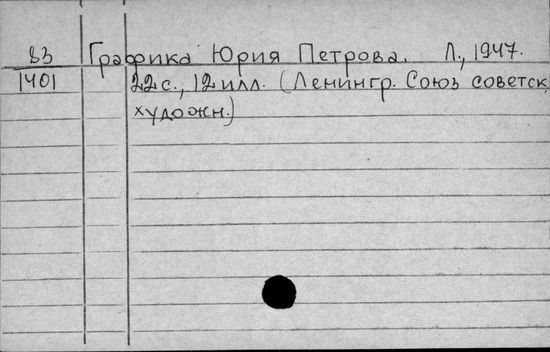 83 Графика Юрия Петрова. Л., 1947.
1401 22 с., 12 илл. (Ленингр. Союз советск.
художн.)